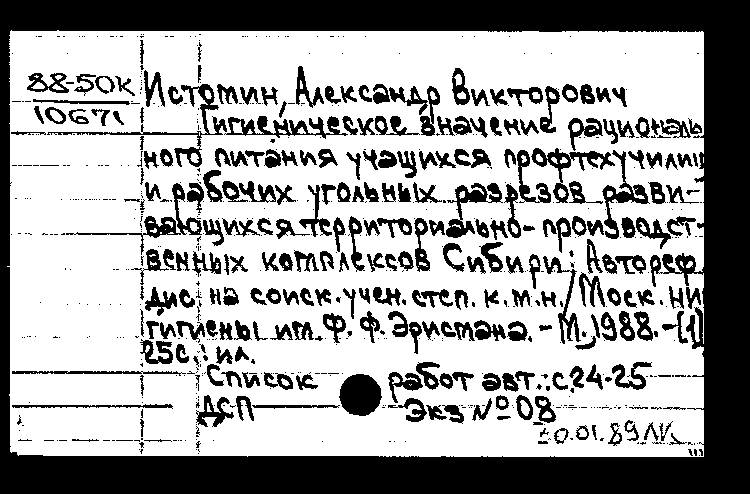 88-50К
10671
Истомин, Александр Викторович
Гигиеническое значение рациональ
ного питания учащихся профтехучилищ
и рабочих угольных разрезов разви-
вающихся территориально-производст-
венных комплексов Сибири: Автореф.
дис. на соиск. учен. степ. к.м.н./Моск. НИИ
гигиены им. Ф. Ф. Эрисмана. - М., 1988. - [1]
25с.: ил.
Список работ авт.: с.24-25
ДСП Экз № 08
30.01.89 ЛК